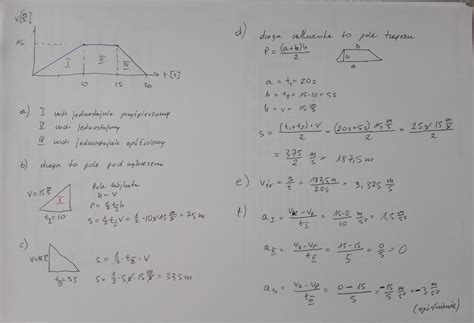 v[m/s]
15
I II III
10 15 20 t[s]
a) I ruch jednostajnie przyspieszony
II ruch jednostajny
III ruch jednostajnie opóźniony
b) droga to pole pod wykresem
v=15 m/s
I
t₁=10
Pole trójkąta
h=v
P=½t₁h
s=½t₁v=½·10s·15 m/s=75m
c)
s=½·t_III·v
s=½·5s·15 m/s=37,5m
d) droga całkowita to pole trapezu
P=(a+b)h/2
b
h
a
a=t₁=20s
b=t₂=15-10=5s
h=v=15 m/s
s=(t₁+t₂)·v/2=(20s+5s)15 m/s/2=25s·15 m/s/2=
=375/2 m=187,5m
e) v_śr=s/t=187,5m/20s=9,375 m/s
f) a_I=vₖ-vₚ/t_I=15-0/10 m/s²=1,5 m/s²
a_II=vₖ-vₚ/t_II=15-15/5=0/5=0
vₖ-vₚ/t_III=0-15/5=-15/5 m/s²=-3 m/s²
(opóźnienie)